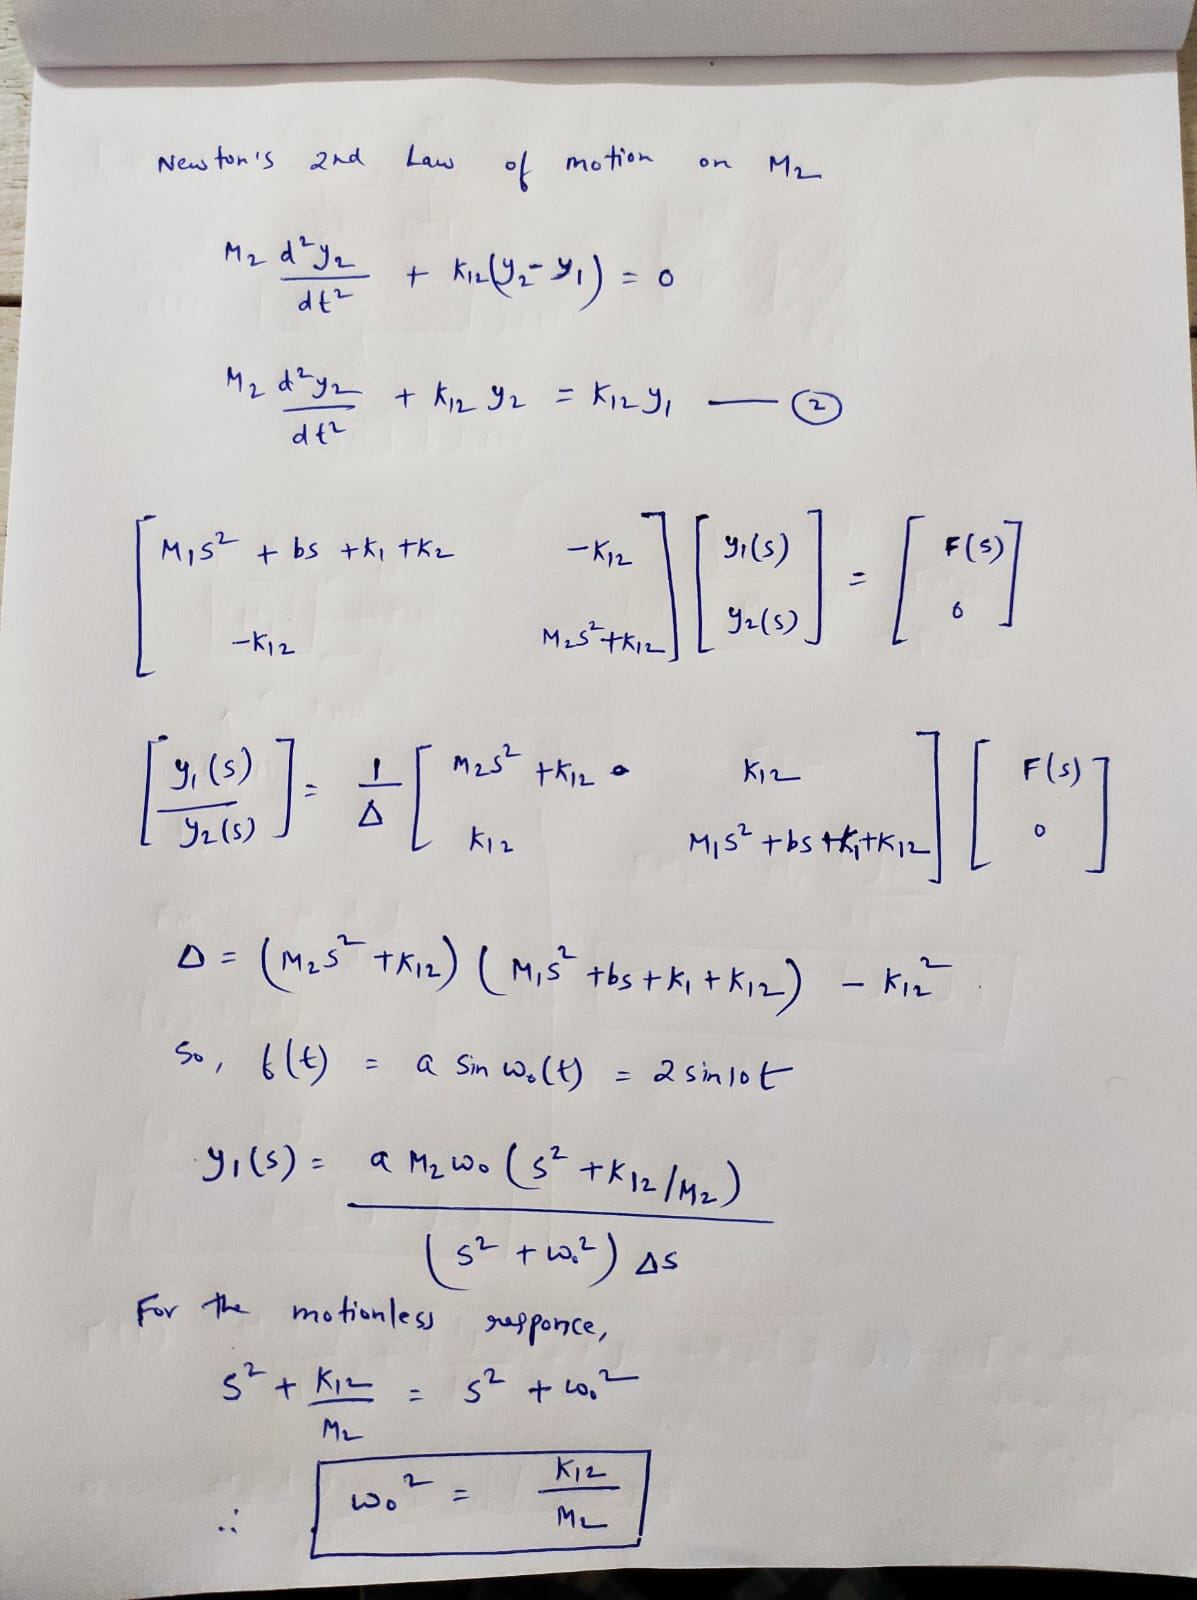 Newton's 2nd Law of motion on M₂
M₂ d²y₂/dt² + K₁₂(y₂ - y₁) = 0
M₂ d²y₂/dt² + K₁₂ y₂ = K₁₂ y₁ — ②
[M₁s² + bs + K₁ + K₂   -K₁₂] [y₁(s)] = [F(s)]
[-K₁₂   M₂s² + K₁₂] [y₂(s)]   [0]
[y₁(s)/y₂(s)] = 1/Δ [M₂s² + K₁₂   K₁₂] [F(s)]
[K₁₂   M₁s² + bs + K₁ + K₁₂] [0]
Δ = (M₂s² + K₁₂) (M₁s² + bs + K₁ + K₁₂) - K₁₂²
So, f(t) = a sin ω₀(t) = 2 sin 10t
y₁(s) = a M₂ ω₀ (s² + K₁₂/M₂)
(s² + ω₀²) Δs
For the motionless responce,
s² + K₁₂/M₂ = s² + ω₀²
∴ ω₀² = K₁₂/M₂